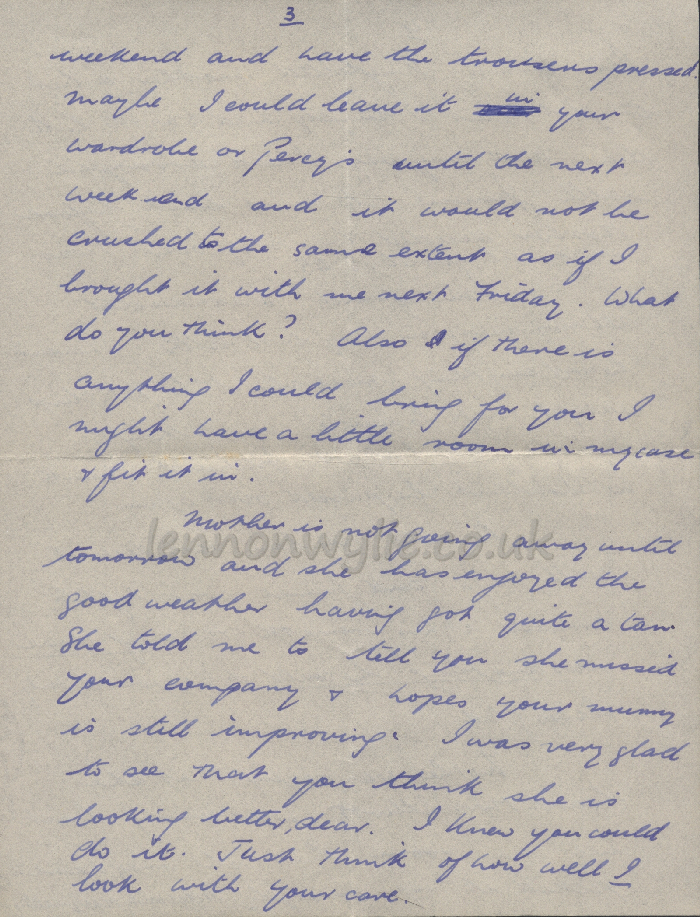 3
weekend and have the trousers pressed.
Maybe I could leave it in your
wardrobe or Percy's until the next
weekend and it would not be
crushed to the same extent as if I
brought it with me next Friday. What
do you think? Also if there is
anything I could bring for you I
might have a little room in my case
& fit it in.
Mother is not going away until
lennonwylie.co.uk
tomorrow and she has enjoyed the
good weather having got quite a tan.
She told me to tell you she missed
your company & hopes your mummy
is still improving. I was very glad
to see that you think she is
looking better, dear. I knew you could
do it. Just think of how well I
look with your care.